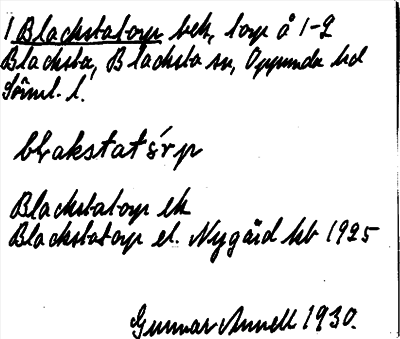 1 Blackstatorp beb, torp å 1-2
Blacksta, Blacksta sn, Oppunda hd
Söml. l.
blakstatårp
Blackstatorp ek
Blackstatorp el. Nygård kb 1925
Gunnar Annell 1930.